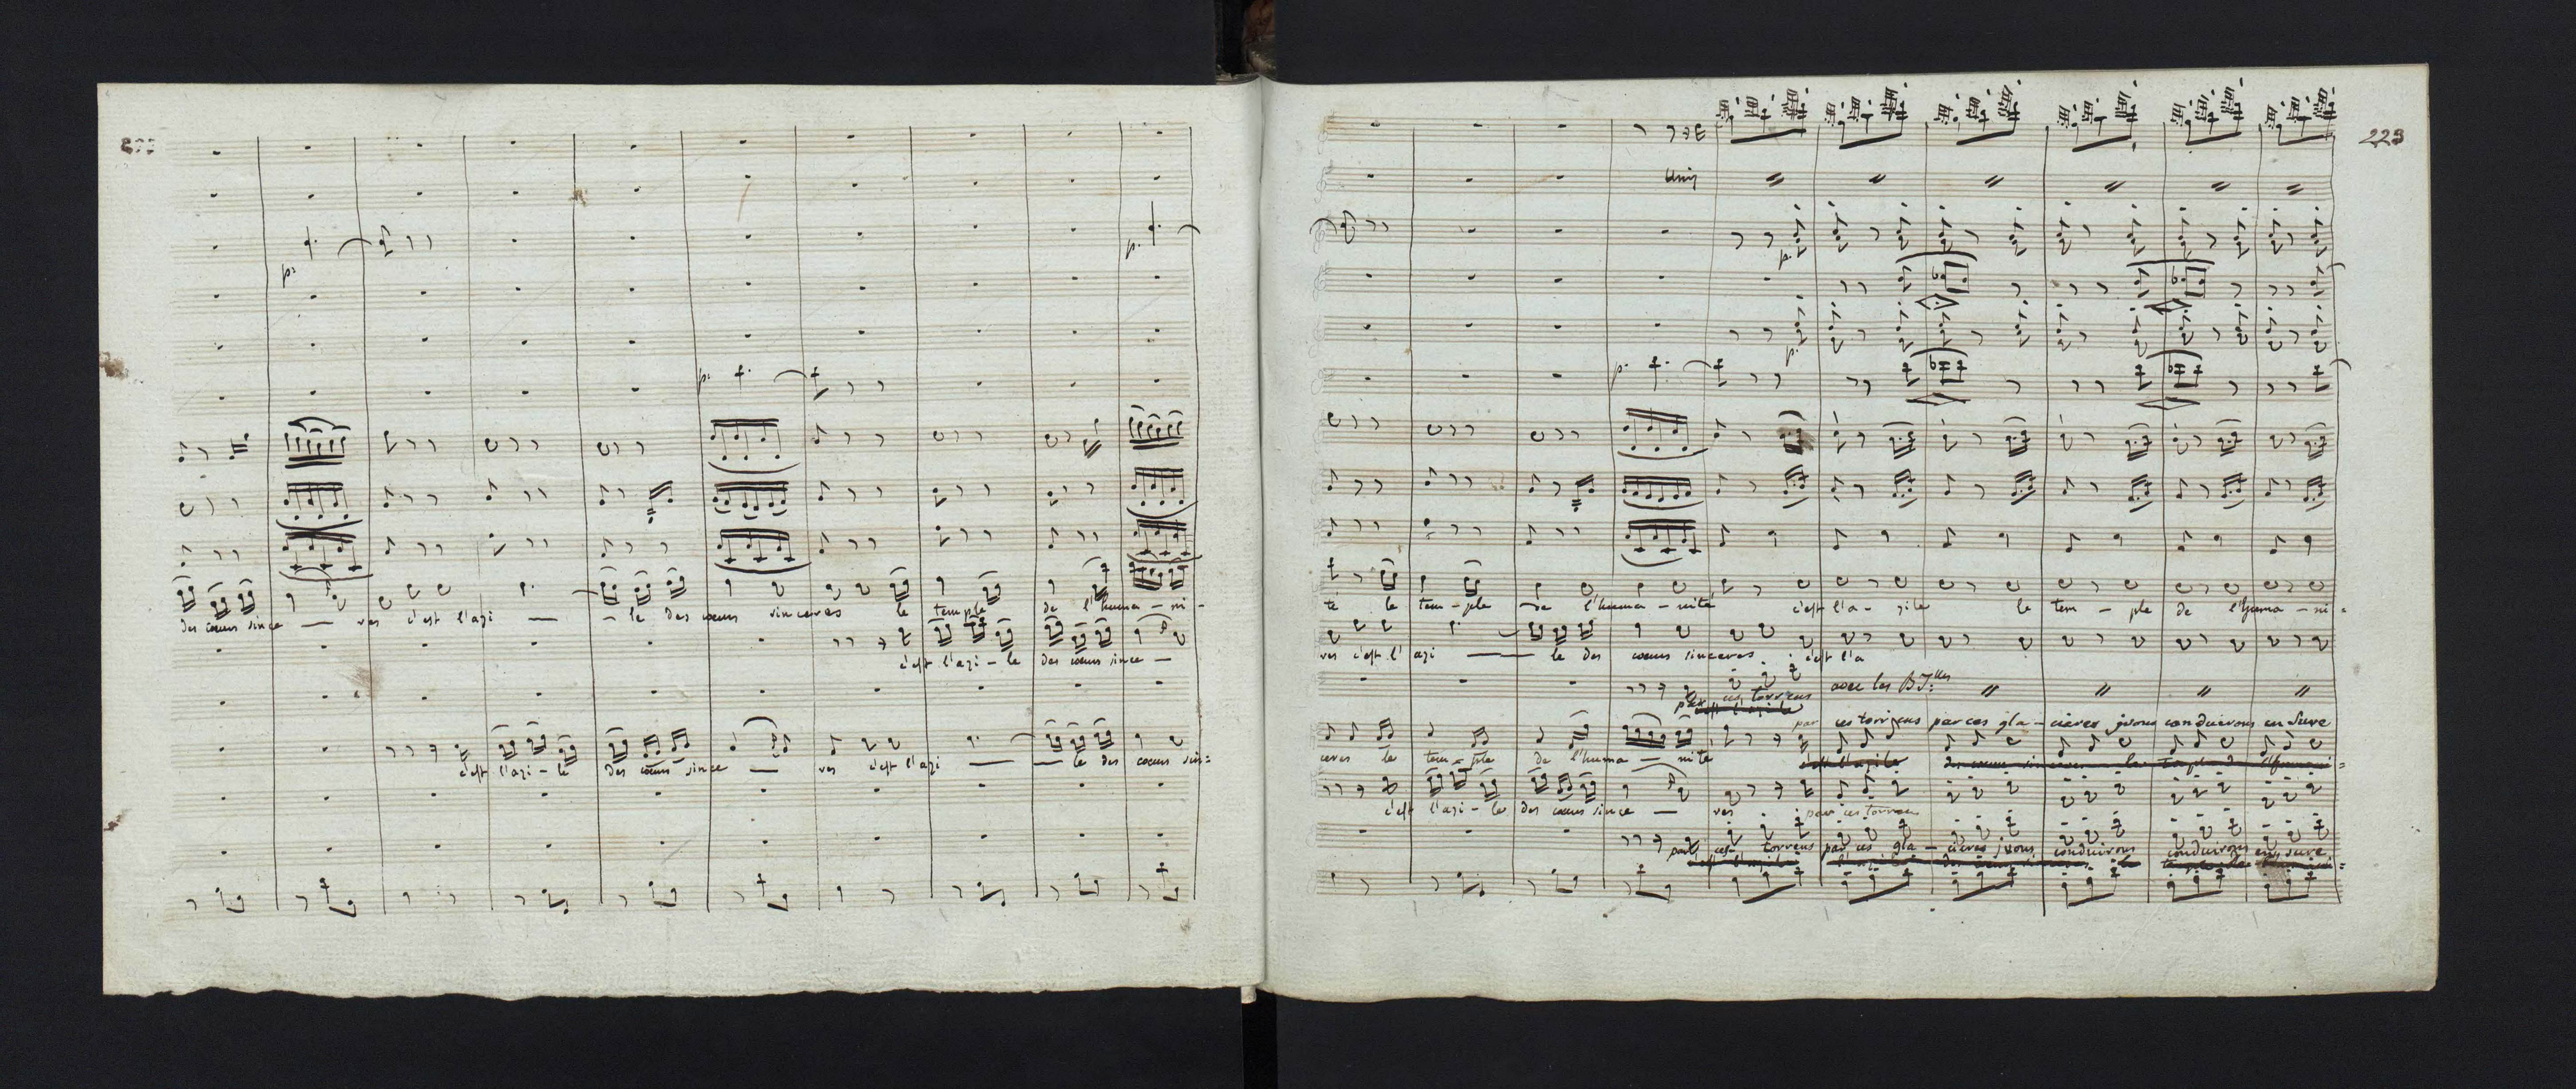 p:
p.
p:
des cœurs since — res c'est l'azi — le des cœurs sinceres le temple de l'huma - ni -
c'est l'azi - le des cœurs since —
c'est l'azi - le des cœurs since — res c'est l'azi — le des cœurs sin=
223
Unis
p.
p.
p.
te le tem - ple de l'huma - nité c'est l'a - zile le tem - ple de l'huma - ni =
res c'est l'azi — le des cœurs sinceres . c'est l'a
par ces torrens avec les B.lles
c'est l'azile
par ces torrens par ces gla - cieres jvous conduirons en sure
ceres le tem - ple de l'huma — nité c'est l'azile des cœurs sin ceres le temple de l'humani =
c'est l'azi - le des cœurs since — res par ces torrens
par ces torrens par ces gla - cieres jvous conduirons conduirons en sure
c'est l'azile